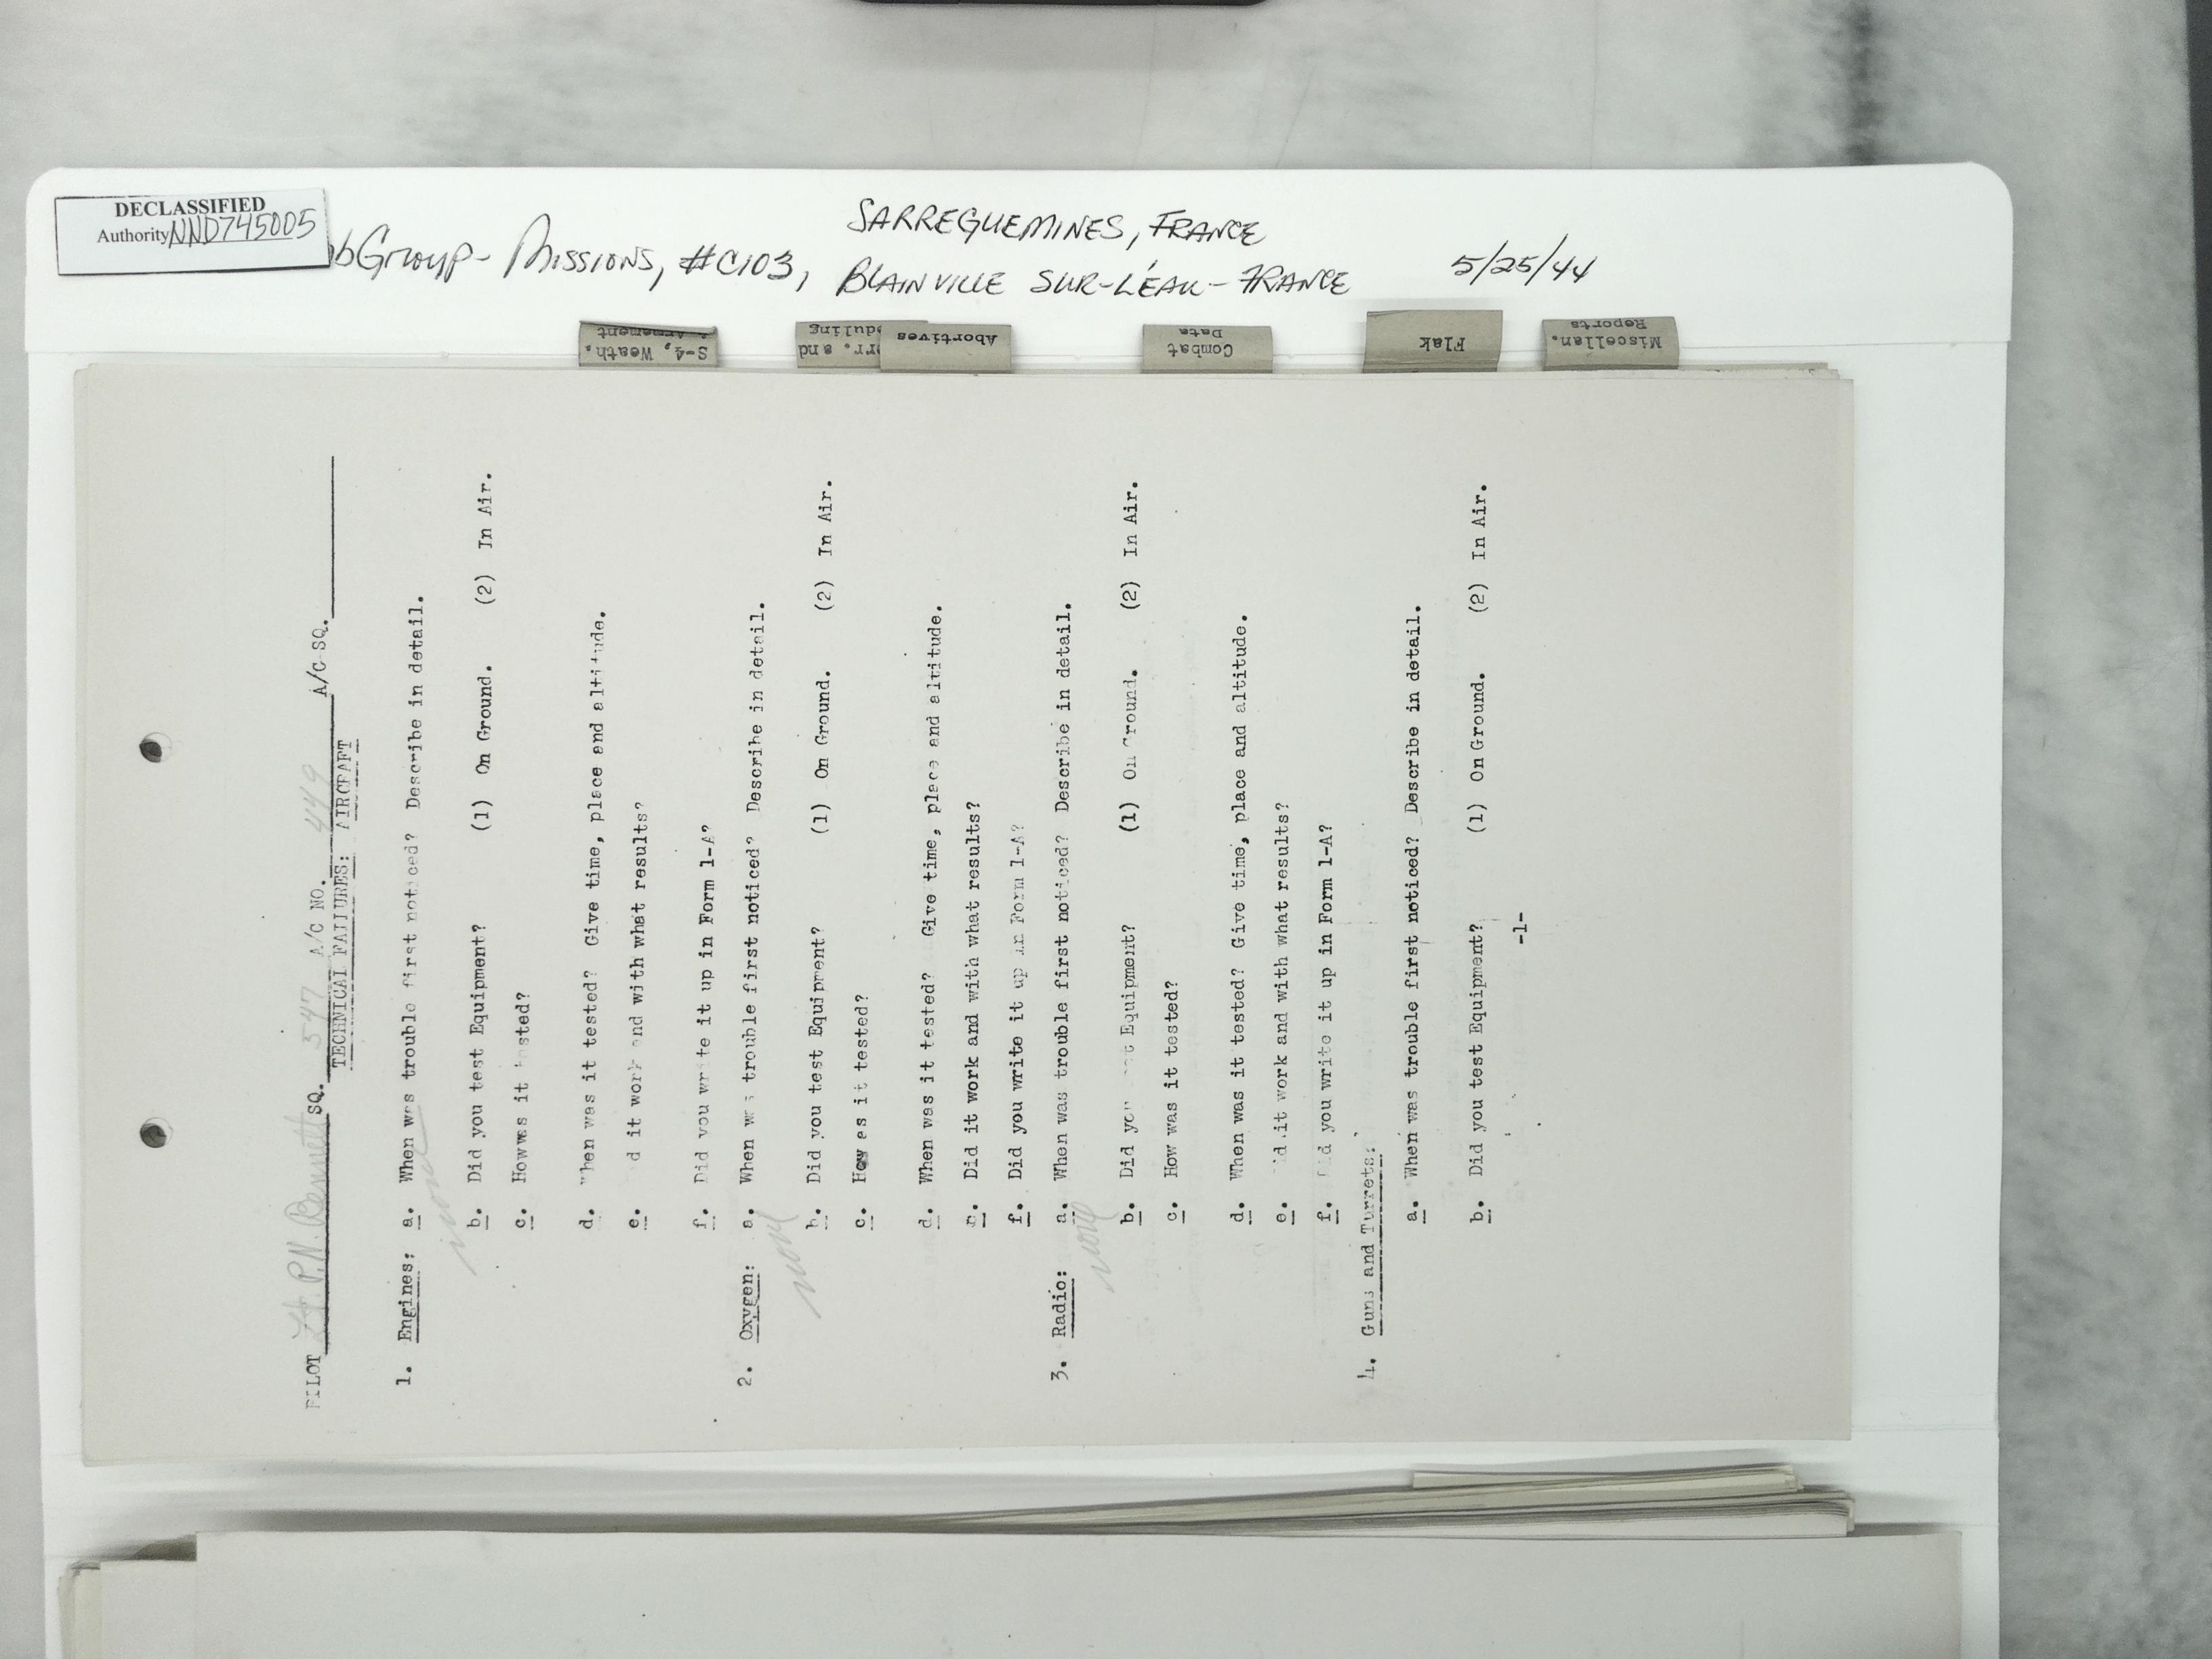 DECLASSIFIED
Authority NND745005
bGroup- Missions, #C103,
SARREGUEMINES, FRANCE
BLAINVILLE SUR-L'EAU-FRANCE
5/25/44
S-4, Weath.
& Armament
rr. and
duling
Abortives
Combat
Data
Flak
Miscellan.
Reports
PILOT Lt. P.N. Bennett SQ. 547 A/C NO. 449 A/C SQ.
TECHNICAL FAILURES: AIRCRAFT
1. Engines: a. When was trouble first noticed? Describe in detail.
none
b. Did you test Equipment? (1) On Ground. (2) In Air.
c. How was it tested?
d. When was it tested? Give time, place and altitude.
e. d it work and with what results?
f. Did you write it up in Form 1-A?
2. Oxygen: a. When was trouble first noticed? Describe in detail.
none
b. Did you test Equipment? (1) On Ground. (2) In Air.
c. How as it tested?
d. When was it tested? Give time, place and altitude.
e. Did it work and with what results?
f. Did you write it up in Form 1-A?
3. Radio: a. When was trouble first noticed? Describe in detail.
none
b. Did you Equipment? (1) On Ground. (2) In Air.
c. How was it tested?
d. When was it tested? Give time, place and altitude.
e. Did it work and with what results?
f. Did you write it up in Form 1-A?
4. Guns and Turrets:
a. When was trouble first noticed? Describe in detail.
b. Did you test Equipment? (1) On Ground. (2) In Air.
-1-